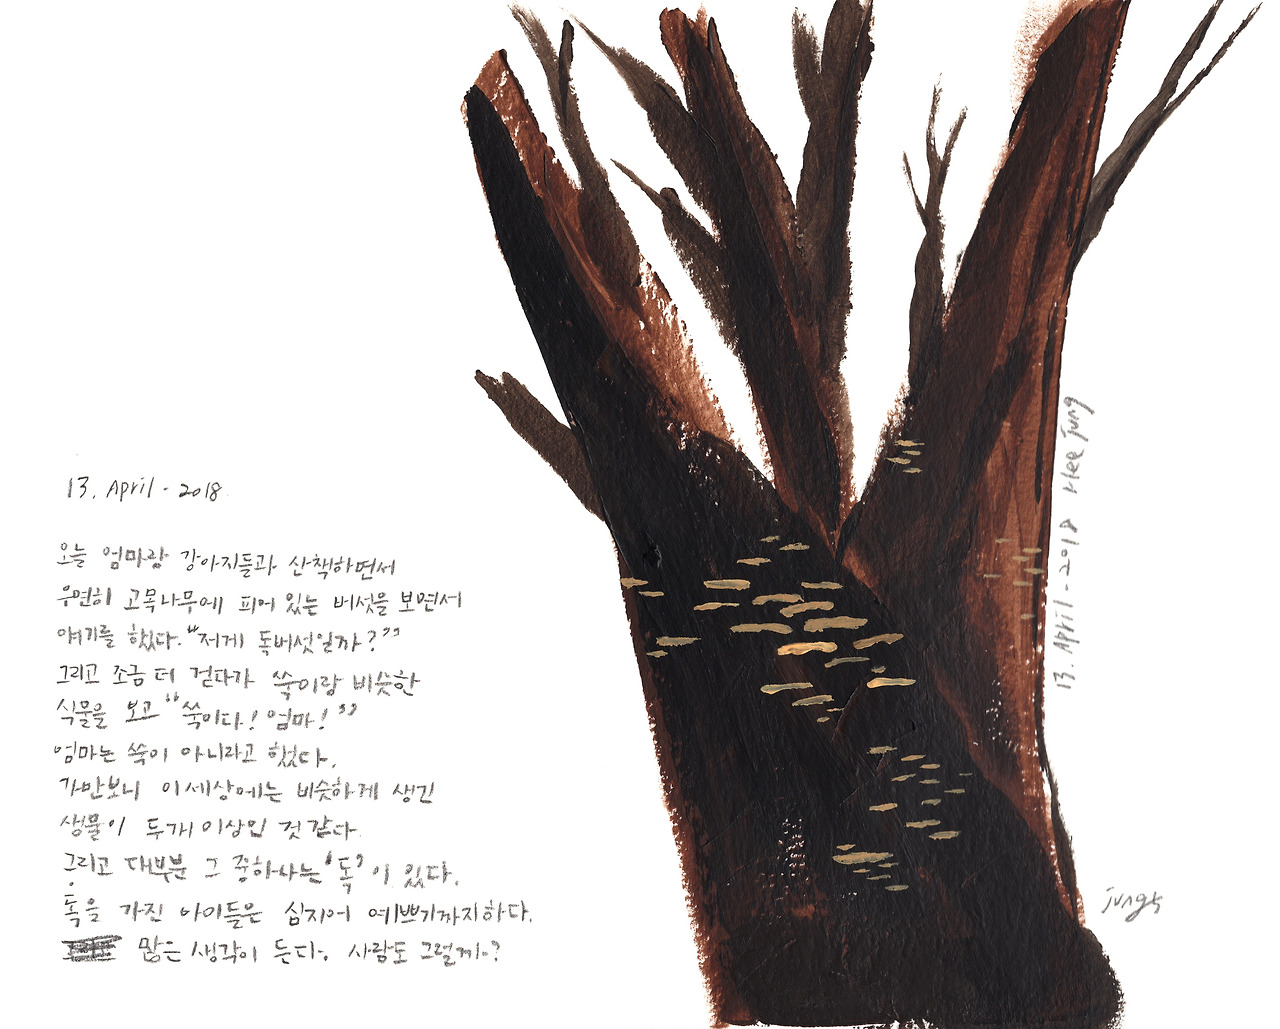 13. April - 2018
오늘 엄마랑 강아지들과 산책하면서
우연히 고목나무에 피어 있는 버섯을 보면서
얘기를 했다. "저게 독버섯일까?"
그리고 조금 더 걷다가 쑥이랑 비슷한
식물을 보고 "쑥이다! 엄마!"
엄마는 쑥이 아니라고 했다.
가만보니 이 세상에는 비슷하게 생긴
생물이 두개 이상인 것 같다.
그리고 대부분 그 중하나는 '독'이 있다.
독을 가진 아이들은 심지어 예쁘기까지하다.
많은 생각이 든다. 사람도 그럴까?
13. April - 2018 Hee jung
jung